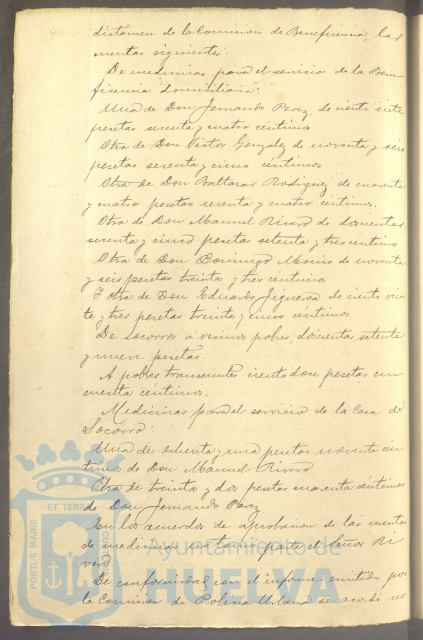 dictámen de la Comision de Beneficencia, las
cuentas siguientes:
De medicinas para el servicio de la Bene
ficencia domiciliaria:
Una de Don Fernando Perez de ciento siete
pesetas sesenta y cuatro céntimos
Otra de Don Victor Gonzalez de noventa y seis
pesetas sesenta y cinco céntimos
Otra de Don Baltasar Rodriguez de cuarenta
y cuatro pesetas sesenta y cuatro céntimos.
Otra de Don Manuel Rivero de doscientas
sesenta y cinco pesetas setenta y tres céntimos
Otra de Don Domingo de noventa
y seis pesetas treinta y tres céntimos
Y otra de Don Eduardo Figueroa de ciento vein
te y tres pesetas treinta y cinco céntimos
De socorros á vecinos pobres, doscientas setenta
y nueve pesetas.
A pobres transeuntes ciento doce pesetas cin
cuenta céntimos.
Medicinas para el servicio de la Casa de
Socorro:
Una de ochenta y una pesetas noventa cén
timos de Don Manuel Rivero
Otra de treinta y dos pesetas cuarenta céntimos
de Don Fernando Perez
En los acuerdos de aprobacion de las cuentas
de medicinas no tomó parte el Señor Ri
vero
De conformidad con el informe emitido por
la Comision de Policia Urbana se acordó
PORTUS MARIS ET TERRE CUSTODIO
Ayuntamiento de
HUELVA